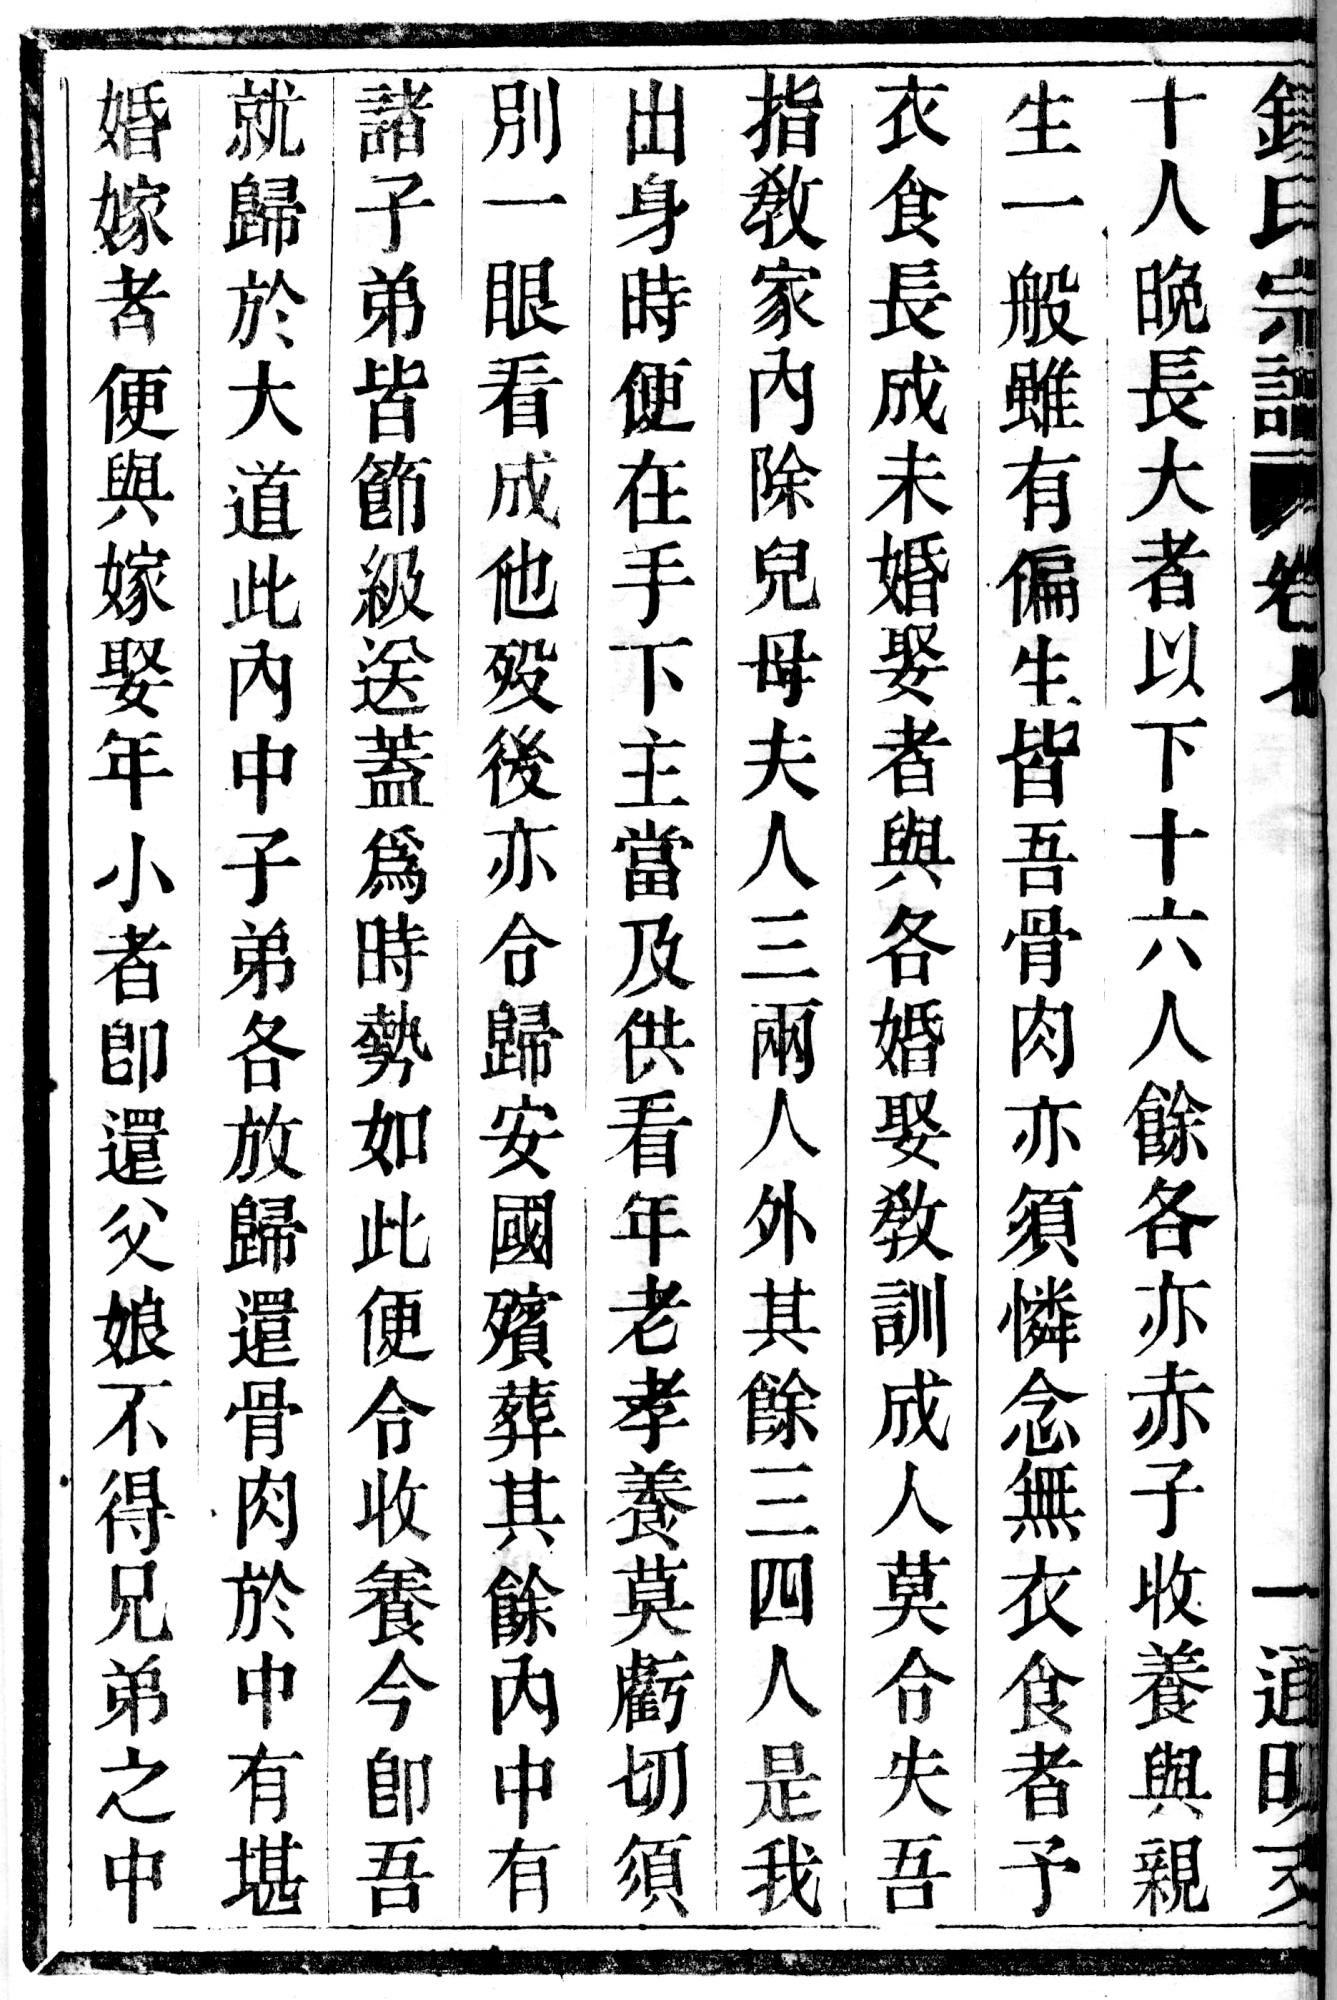 錢氏宗譜 卷 一 通明
十人晚長大者以下十六人餘各亦赤子收養與親
生一般雖有偏生皆吾骨肉亦須憐念無衣食者予
衣食長成未婚娶者與各婚娶教訓成人莫令失吾
指教家內除兒母夫人三兩人外其餘三四人是我
出身時便在手下主當及供看年老孝養莫虧切須
別一眼看成他歿後亦合歸安國殯葬其餘內中有
諸子弟皆節級送蓋爲時勢如此便令收養今卽吾
就歸於大道此內中子弟各放歸還骨肉於中有堪
婚嫁者便與嫁娶年小者卽還父娘不得兄弟之中